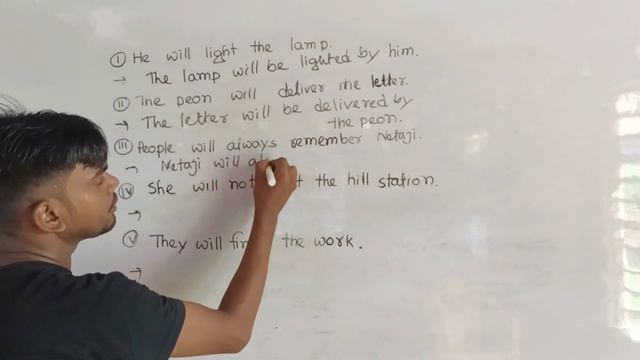 (i) He will light the lamp.
→ The lamp will be lighted by him.
(ii) The peon will deliver the letter.
→ The letter will be delivered by
the peon.
(iii) People will always remember Netaji.
→ Netaji will
(iv) She will not the hill station.
→
(v) They will the work.
→